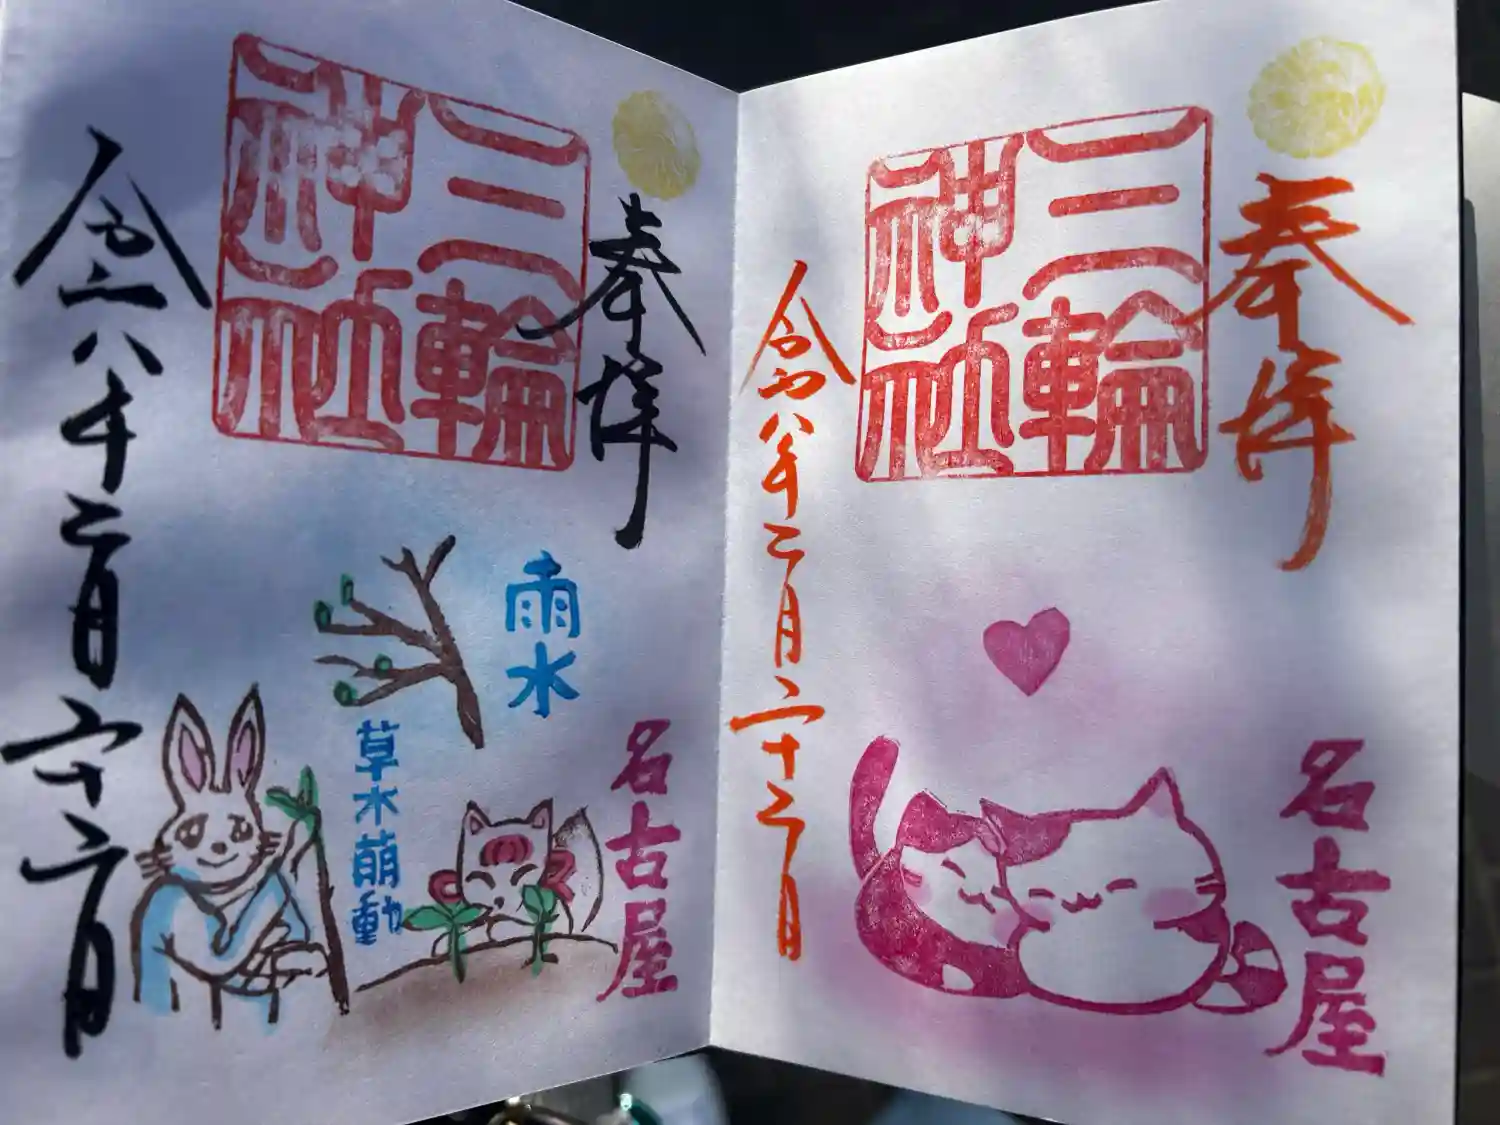 奉拝
三輪
神社
名古屋
令和八年二月二十二日
奉拝
三輪
神社
雨水
草木萌動
名古屋
令和八年二月二十二日